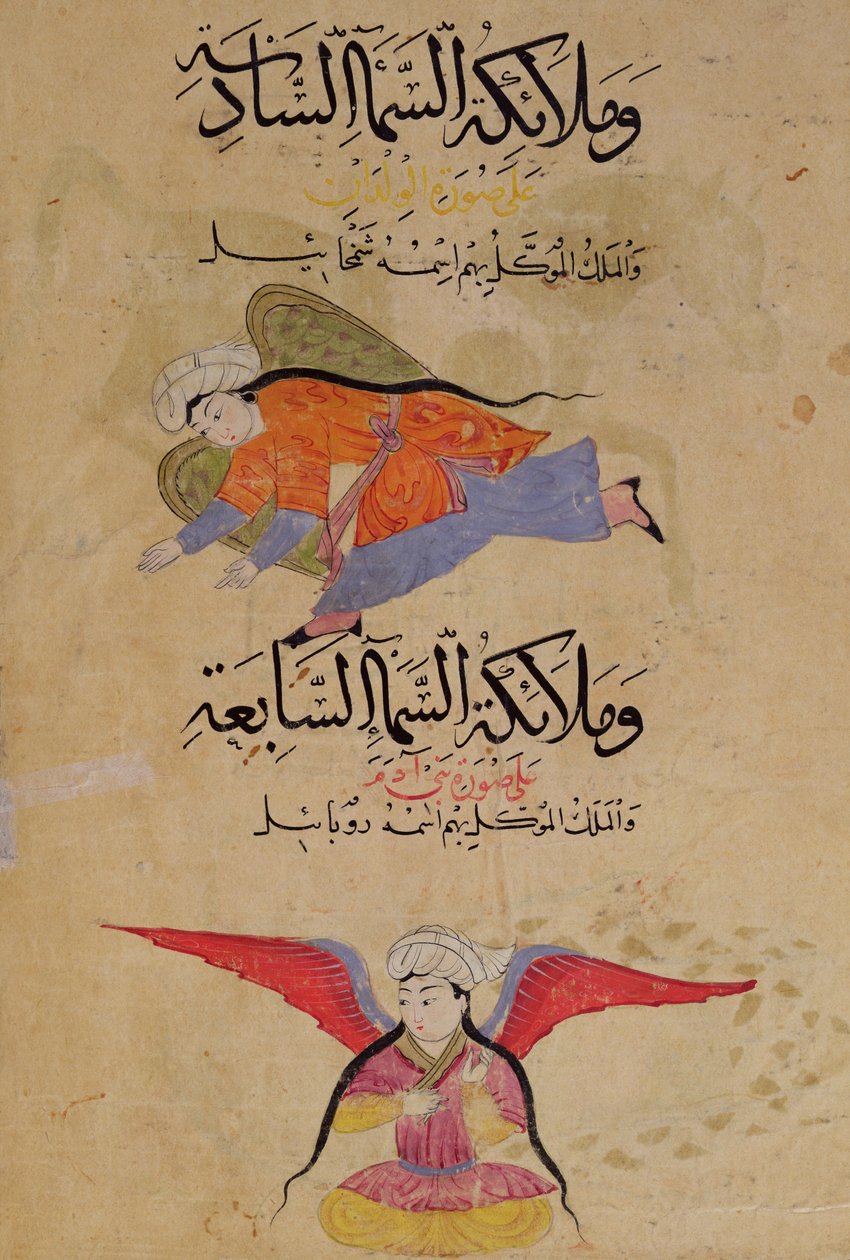 وَمَلَائِكَةُ السَّمَآءِ السَّادِسَةِ
عَلَى صُورَةِ الْوِلْدَانِ
وَالْمَلَكُ الْمُوَكَّلُ بِهِمْ اِسْمُهُ شَمْخَائِيل
وَمَلَائِكَةُ السَّمَآءِ السَّابِعَةِ
عَلَى صُورَةِ بَنِي آدَمَ
وَالْمَلَكُ الْمُوَكَّلُ بِهِمْ اسْمُهُ رُوبَائِيل